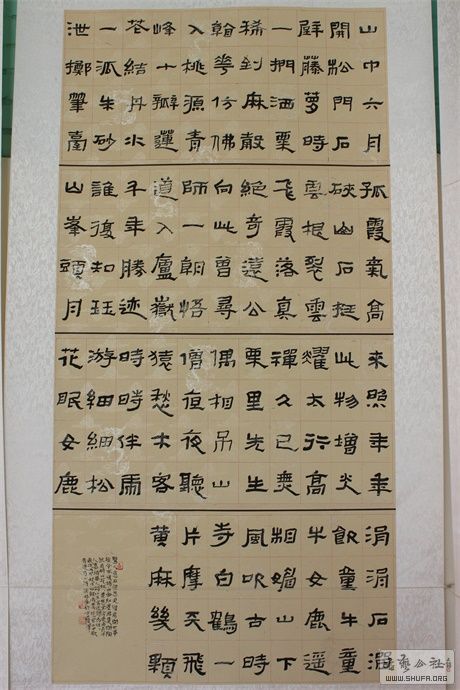 山中六月
開松門石
壁藤蘿時
一捫洒栗
稀到麻散
翰華仿佛
入桃源青
峰十瓣蓮
塔結丹水
一派朱砂
泄擲筆臺
孤霞氣高
硤幽石挺
雲根裂雲
飛霞落真
絕奇遠公
向此曾尋
師一朗悟
道入廬嶽
千年勝迹
誰復知珏
山峯頭月
來照年年
此物增光
耀太行高
禪久已無
栗里先生
偶相弔山
僧夜夜聽
猿愁木客
時時伴虎
游細細松
花眠女鹿
涓涓石澗
飲童牛童
牛女鹿遥
相媚山下
風吹古時
寺白鶴一
片摩天飛
黄麻幾顆
書藝公社
WWW.SHUFA.ORG